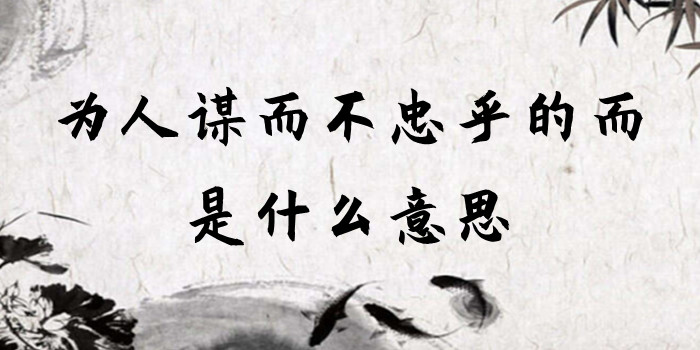 为人谋而不忠乎的而
是什么意思